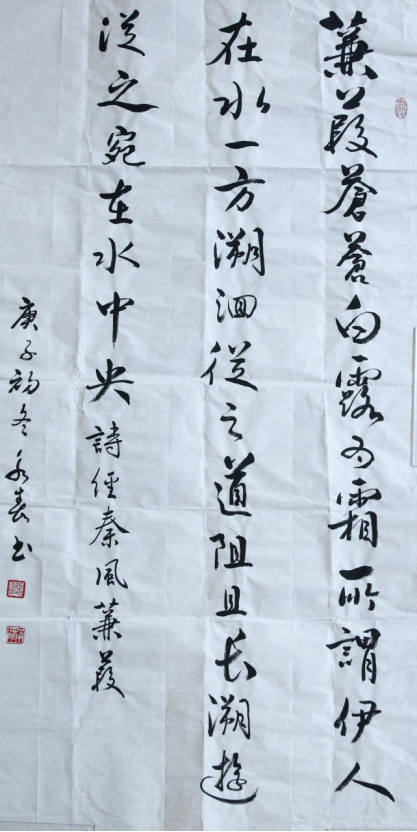 蒹葭蒼蒼白露为霜所謂伊人
在水一方溯洄從之道阻且长溯游
従之宛在水中央詩經秦風蒹葭
庚子初冬永春书